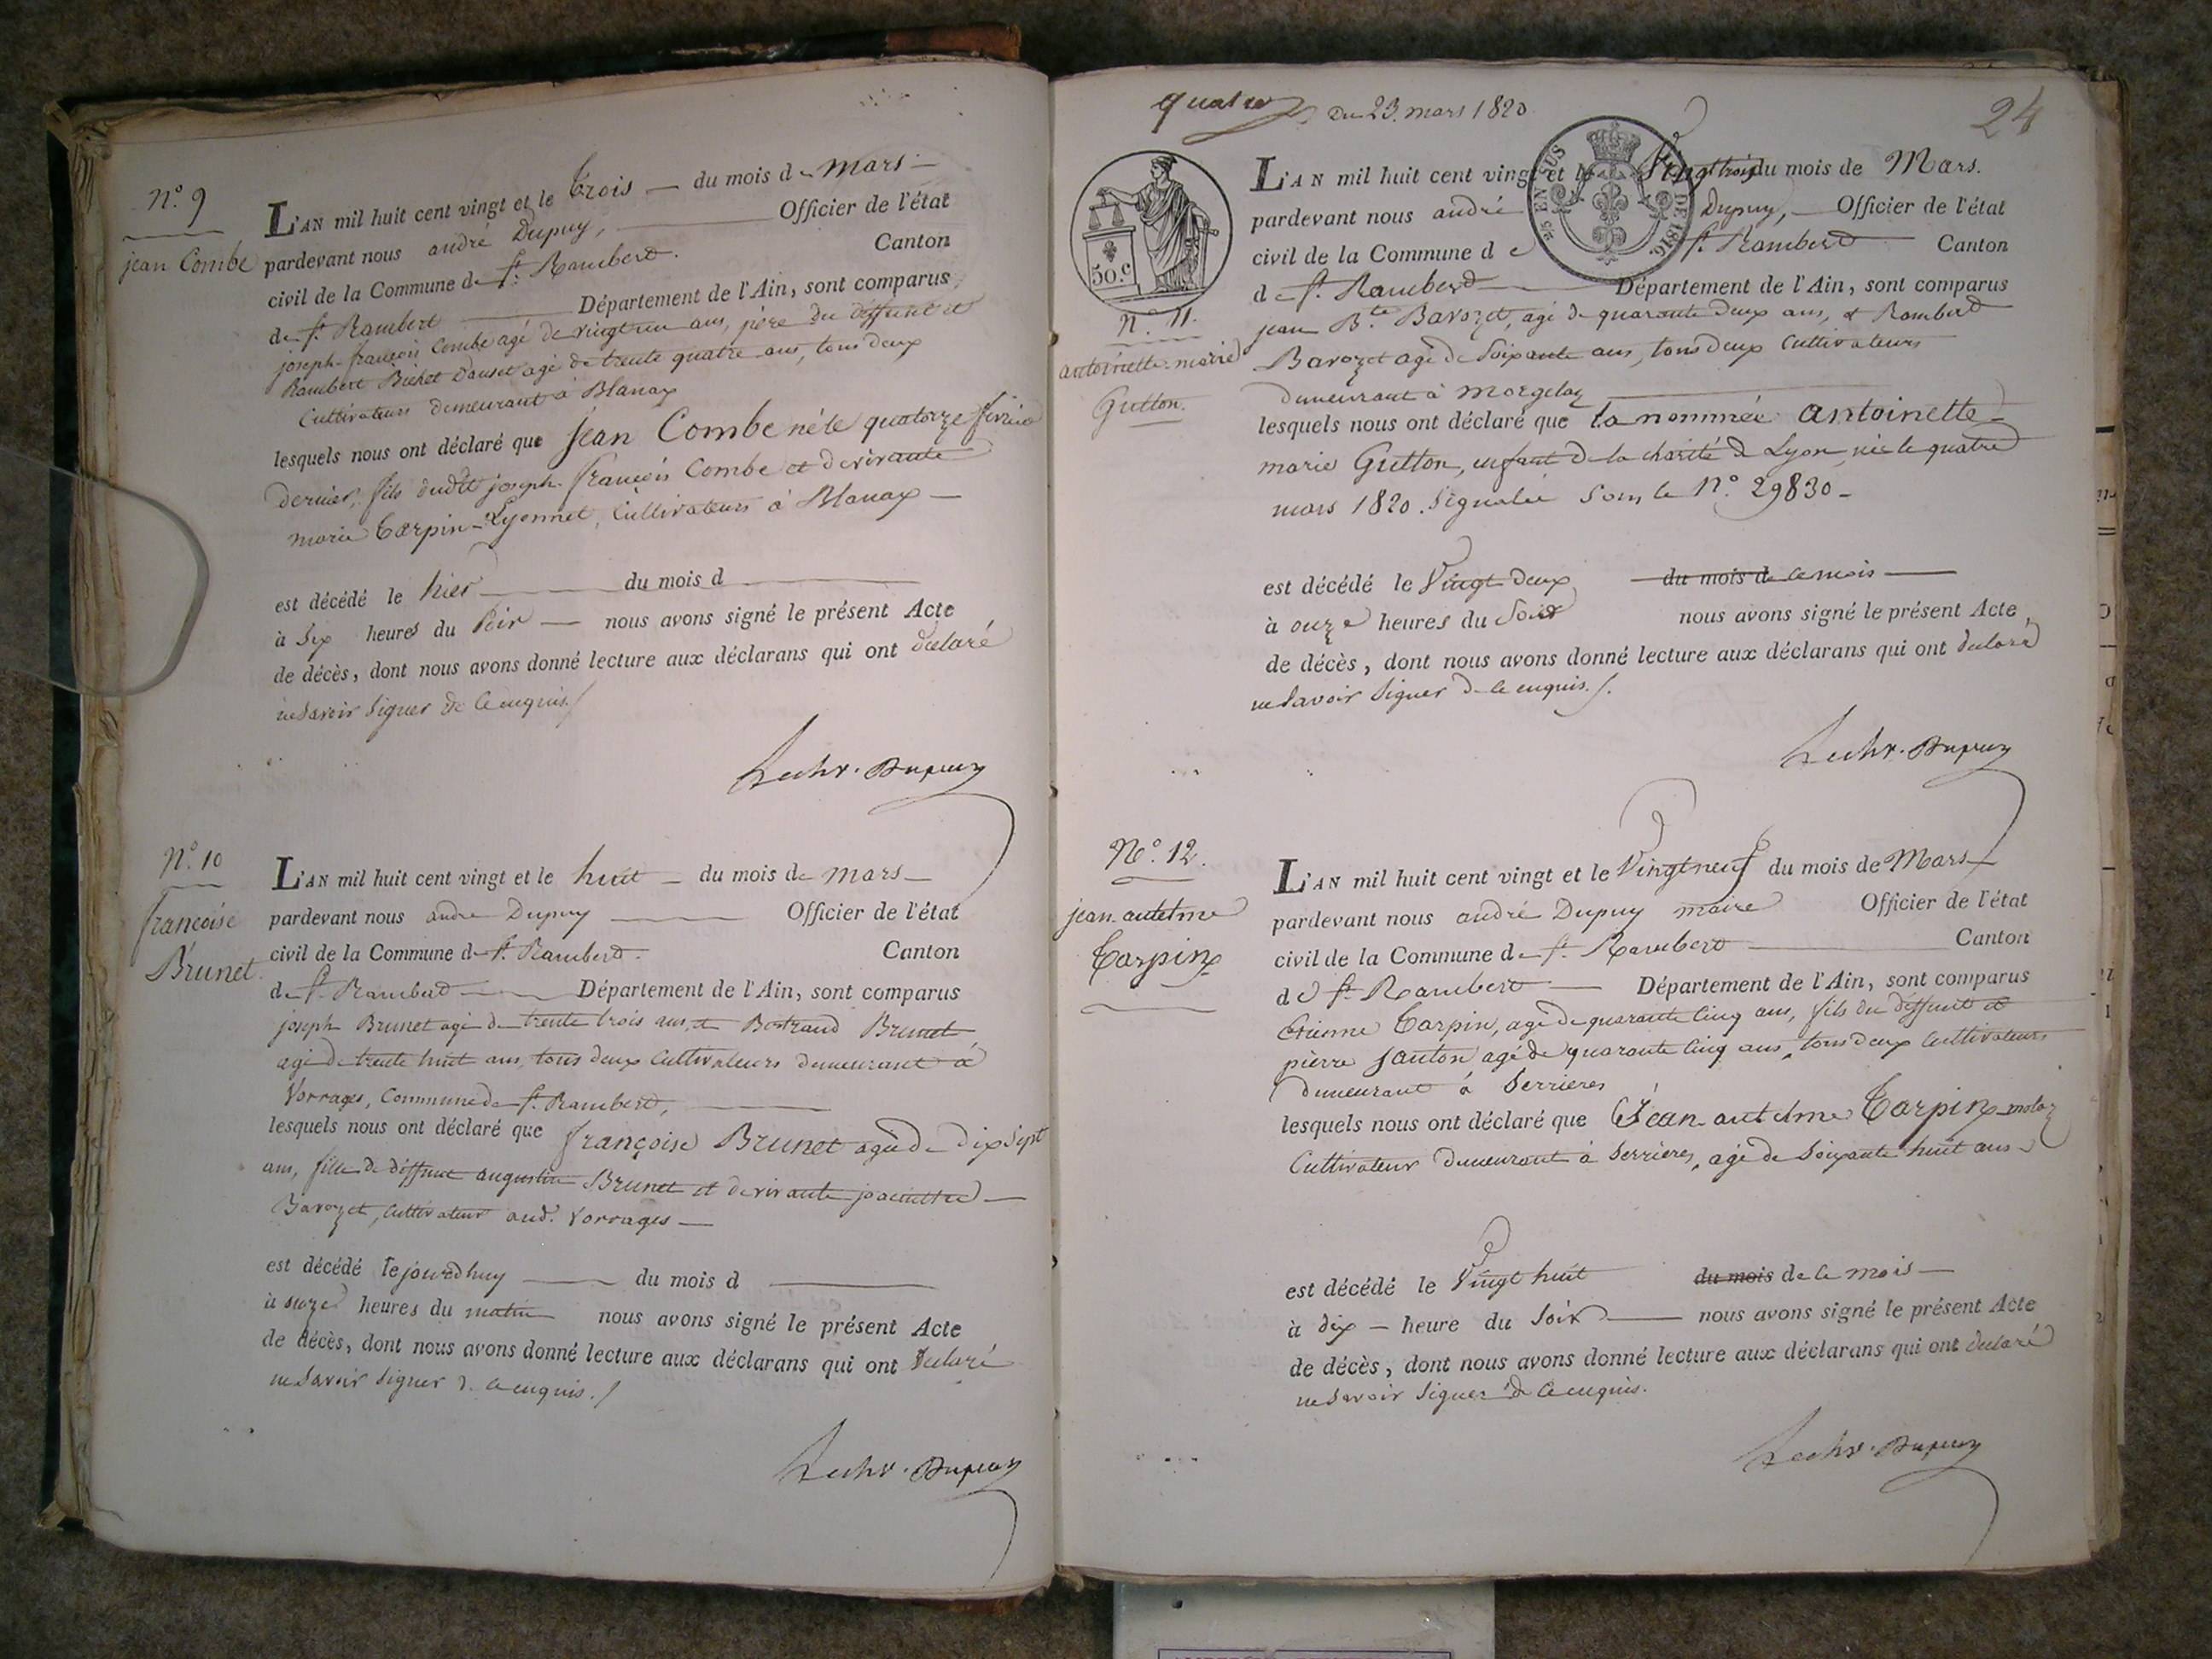 N.º 9
jean Combe
L'AN mil huit cent vingt et le Trois du mois de mars
pardevant nous andré Dupuy, Officier de l'état
civil de la Commune de St. Rambert. Canton
de St. Rambert Département de l'Ain, sont comparus
joseph-françois Combe agé de vingt un ans, père du deffunt et
Rambert Bichet Dauset agé de trente quatre ans, tous deux
Cultivateurs demeurant à Blanax
lesquels nous ont déclaré que jean Combe né le quatorze février
dernier, fils dudt joseph-françois Combe et de vivante
marie Carpin-Lyonnet, Cultivateurs à Blanax
est décédé le hier du mois d
à Six heures du Soir nous avons signé le présent Acte
de décès, dont nous avons donné lecture aux déclarans qui ont declaré
ne Savoir Signer de Ce enquis./
Dupuy
N.º 10
françoise
Brunet
L'AN mil huit cent vingt et le huit du mois de mars
pardevant nous andré Dupuy Officier de l'état
civil de la Commune de St. Rambert. Canton
de St. Rambert Département de l'Ain, sont comparus
joseph Brunet agé de trente trois ans, et Bertrand Brunet
agé de trente huit ans, tous deux Cultivateurs demeurant à
Vorrages, Commune de St. Rambert,
lesquels nous ont déclaré que françoise Brunet agée de dix Sept
ans, fille de deffunt augustin Brunet et de vivante
Bavozet, Cultivateur aud. Vorrages
est décédé le jourdhuy du mois d
à onze heures du matin nous avons signé le présent Acte
de décès, dont nous avons donné lecture aux déclarans qui ont declaré
ne Savoir Signer de Ce enquis./
Dupuy
quatre Du 23. mars 1820
24
50.c
5/5 EN SUS
LOI DE 1816.
N.º 11.
antoinette-marie
Gutton.
L'AN mil huit cent vingt et le Vingt trois du mois de Mars.
pardevant nous andré Dupuy, Officier de l'état
civil de la Commune de St. Rambert Canton
de St. Rambert Département de l'Ain, sont comparus
jean Bte. Bavozet, agé de quarante deux ans, & Rambert
Bavozet agé de Soixante ans, tous deux Cultivateurs
demeurant à Morgelaz
lesquels nous ont déclaré que la nommée antoinette
marie Gutton, enfant de la charité de Lyon, née le quatre
mars 1820. Signalée Sous le N.º 29830
est décédé le Vingt deux du mois de ce mois
à onze heures du Soir nous avons signé le présent Acte
de décès, dont nous avons donné lecture aux déclarans qui ont declaré
ne Savoir Signer de Ce enquis./.
Dupuy
N.º 12.
jean-antelme
Carpin
L'AN mil huit cent vingt et le Vingt neuf du mois de Mars
pardevant nous andré Dupuy maire Officier de l'état
civil de la Commune de St. Rambert Canton
de St. Rambert Département de l'Ain, sont comparus
Etienne Carpin, agé de quarante Cinq ans, fils du deffunt et
pierre Janton agé de quarante Cinq ans, tous deux Cultivateurs
demeurant à Serrieres
lesquels nous ont déclaré que Jean-antelme Carpin-molaz
Cultivateur demeurant à Serrières, agé de Soixante huit ans
est décédé le Vingt huit du mois de Ce mois
à dix heure du Soir nous avons signé le présent Acte
de décès, dont nous avons donné lecture aux déclarans qui ont declaré
ne Savoir Signer de Ce enquis.
Dupuy